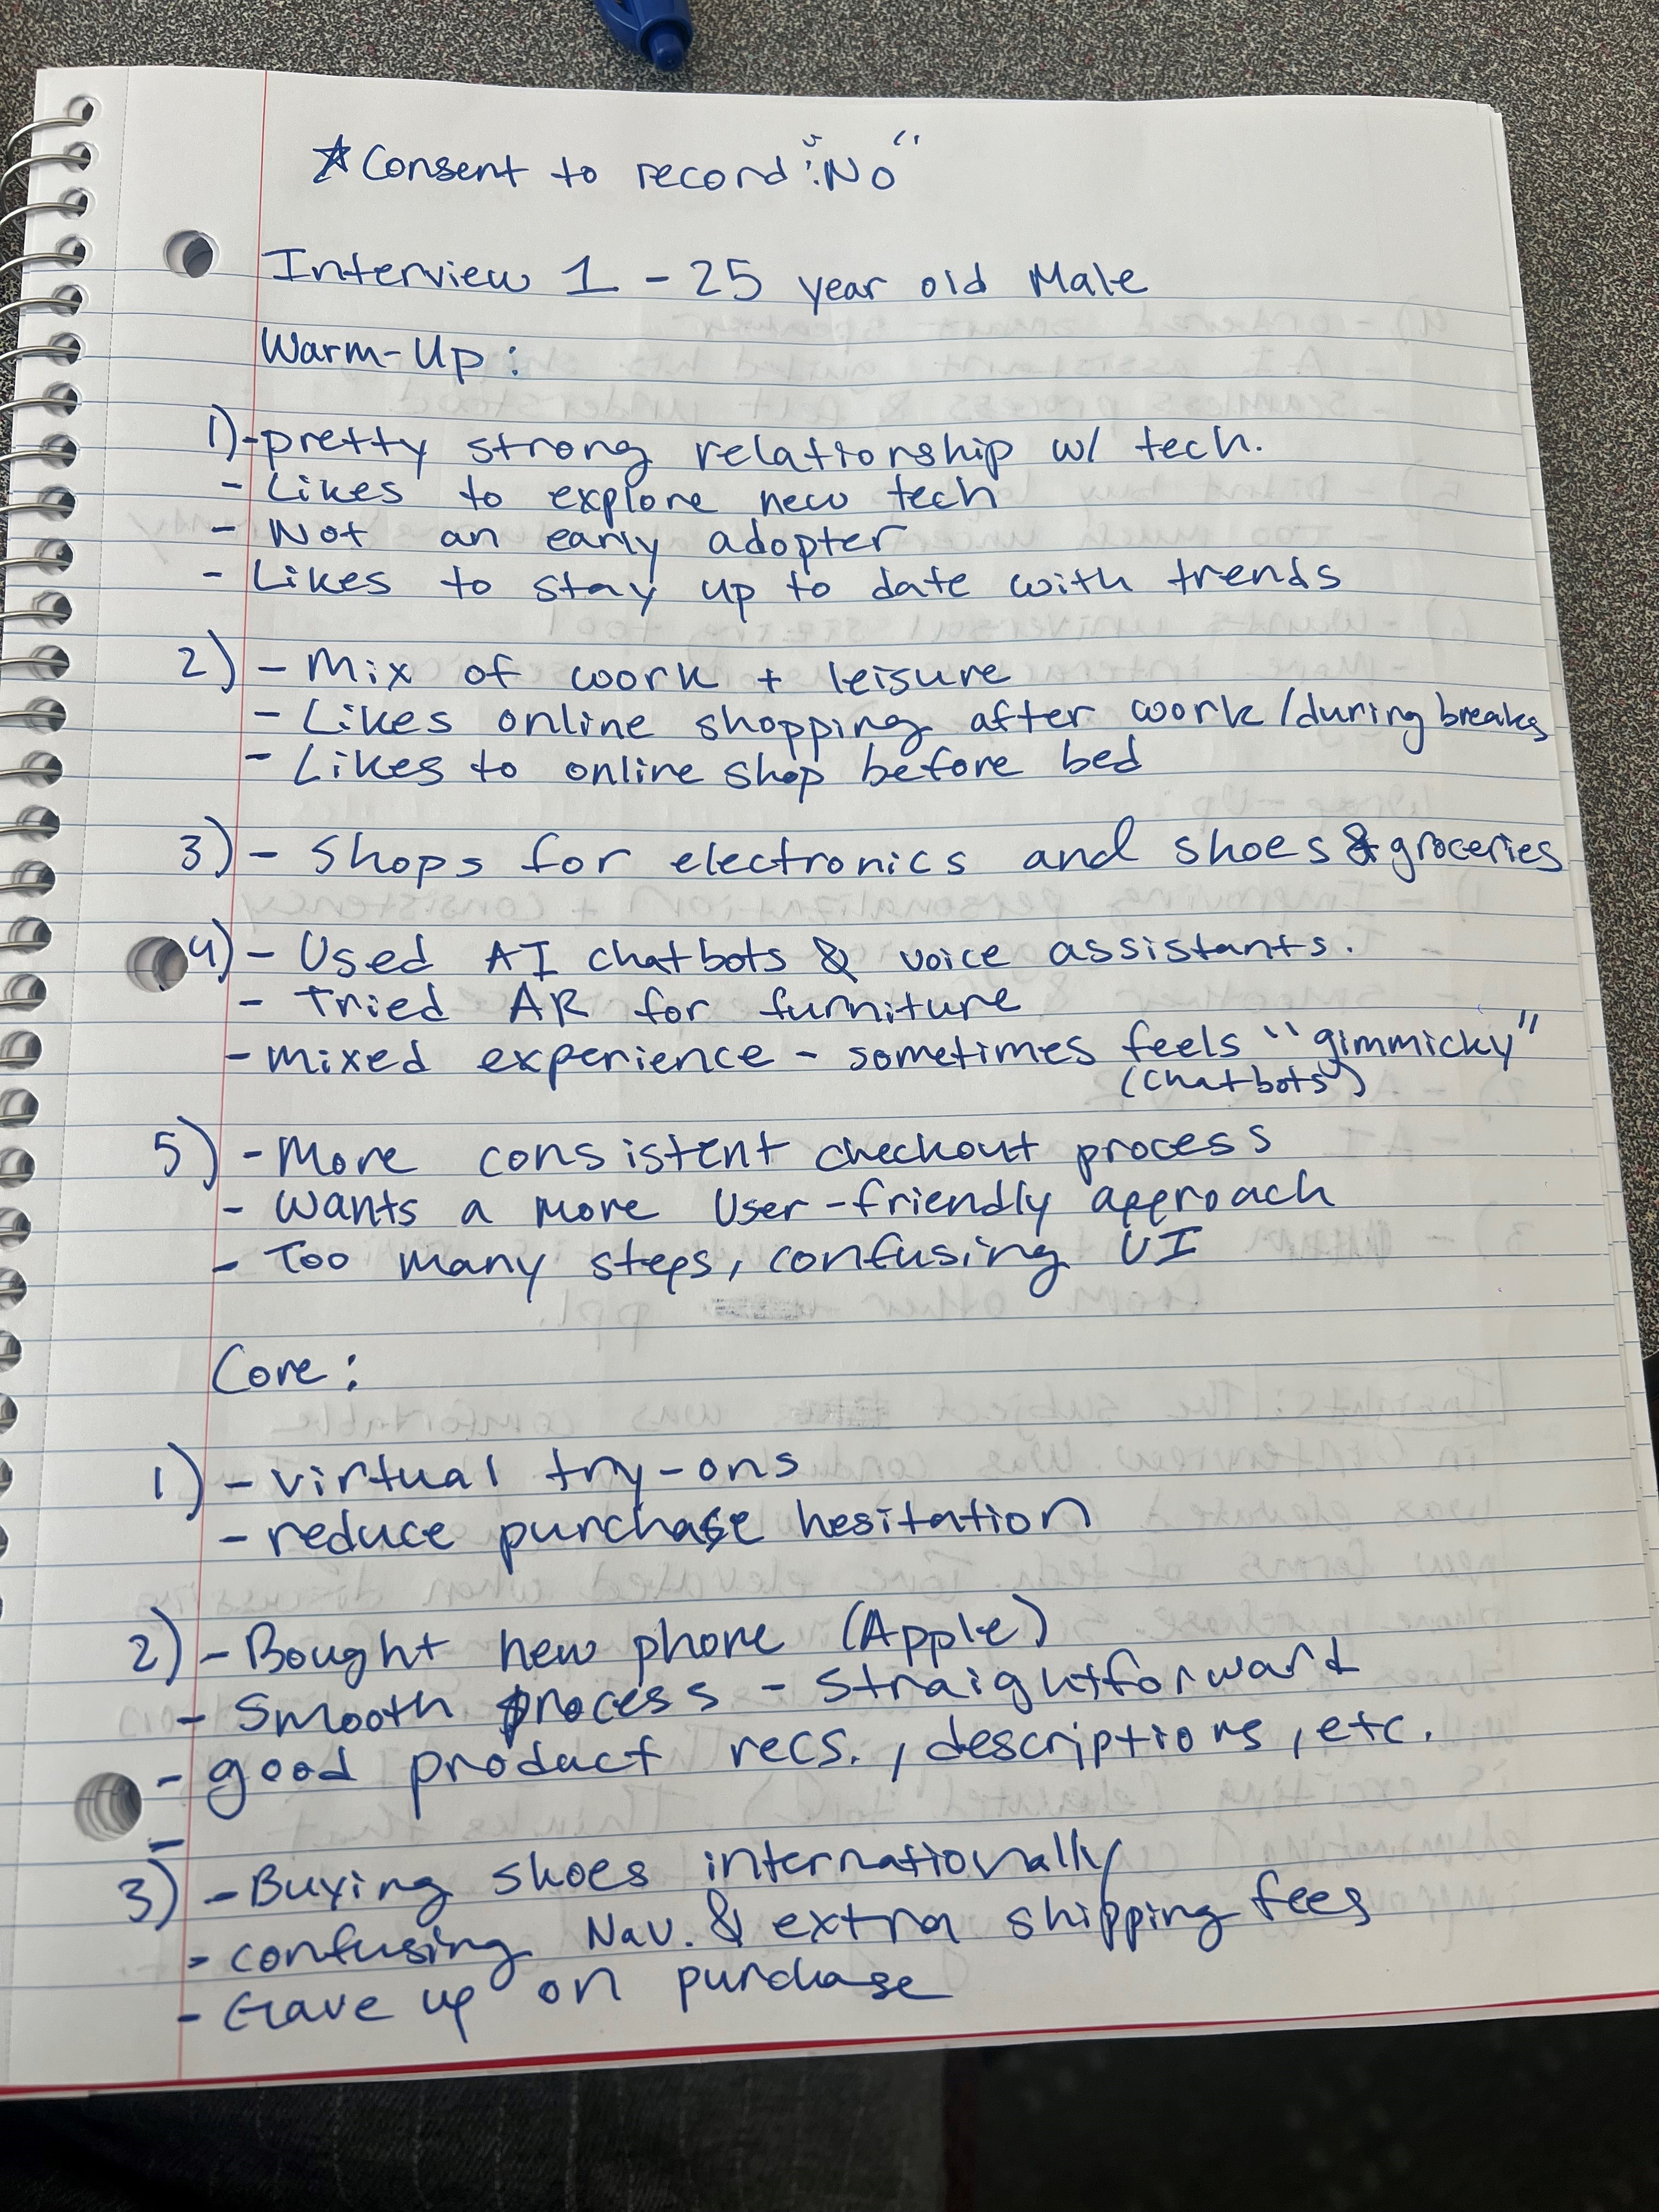 ☆ Consent to record: "No"
Interview 1 - 25 year old Male
Warm-Up:
1) - pretty strong relationship w/ tech.
- Likes to explore new tech
- Not an early adopter
- Likes to stay up to date with trends
2) - Mix of work + leisure
- Likes online shopping after work /during breaks
- Likes to online shop before bed
3) - Shops for electronics and shoes & groceries
4) - Used AI chatbots & voice assistants.
- Tried AR for furniture
- mixed experience - sometimes feels "gimmicky"
(chatbots)
5) - More consistent checkout process
- Wants a more User-friendly approach
- Too many steps, confusing UI
Core:
1) - virtual try-ons
- reduce purchase hesitation
2) - Bought new phone (Apple)
- Smooth process - Straightforward
- good product recs., descriptions, etc.
-
3) - Buying shoes internationally
- confusing Nav. & extra shipping fees
- Gave up on purchase